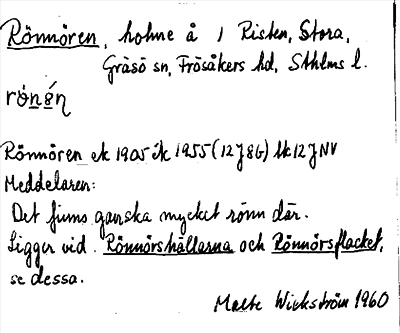 Rönnören, holme å 1 Risten, Stora,
Gräsö sn, Frösåkers hd, Sthlms l.
Rönnören ek 1905 ék 1955 (12J8G) tk12JNV
Meddelaren:
Det finns ganska mycket rönn där.
Ligger vid Rönnörshällarna och Rönnörsflacket,
se dessa.
Malte Wickström 1960